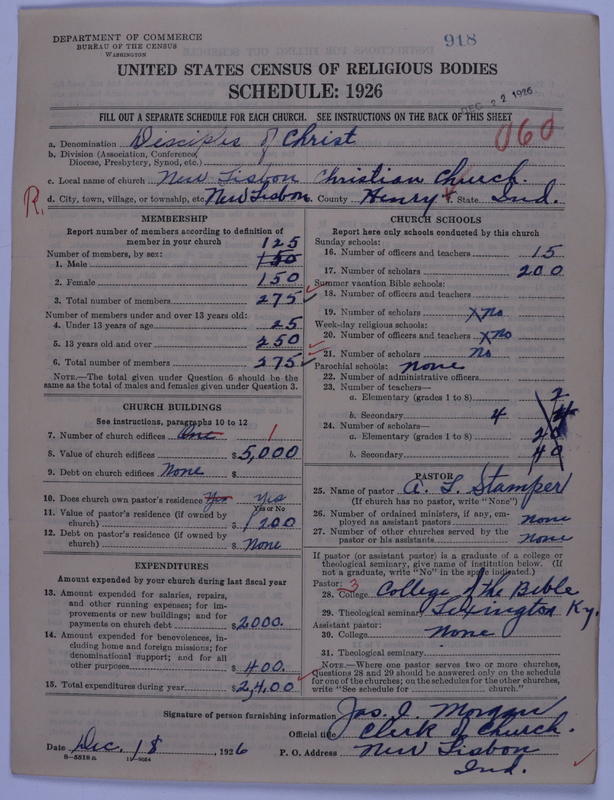 DEPARTMENT OF COMMERCE
BUREAU OF THE CENSUS
WASHINGTON
918
UNITED STATES CENSUS OF RELIGIOUS BODIES
SCHEDULE: 1926
DEC 22 1926
FILL OUT A SEPARATE SCHEDULE FOR EACH CHURCH. SEE INSTRUCTIONS ON THE BACK OF THIS SHEET
060
a. Denomination Disciples of Christ
b. Division (Association, Conference,
Diocese, Presbytery, Synod, etc.)
c. Local name of church New Lisbon Christian Church.
R. d. City, town, village, or township, etc. New Lisbon e. County Henry f. State Ind.
MEMBERSHIP
Report number of members according to definition of
member in your church
Number of members, by sex: 125
1. Male 150
2. Female 150
3. Total number of members 275
Number of members under and over 13 years old:
4. Under 13 years of age 25
5. 13 years old and over 250
6. Total number of members 275
NOTE.—The total given under Question 6 should be the
same as the total of males and females given under Question 3.
CHURCH BUILDINGS
See instructions, paragraphs 10 to 12
7. Number of church edifices One 1
8. Value of church edifices $5,000
9. Debt on church edifices None $
10. Does church own pastor's residence Yes Yes
Yes or No
11. Value of pastor's residence (if owned by
church) $1200
12. Debt on pastor's residence (if owned by
church) $ None
EXPENDITURES
Amount expended by your church during last fiscal year
13. Amount expended for salaries, repairs,
and other running expenses; for im-
provements or new buildings; and for
payments on church debt $2000.
14. Amount expended for benevolences, in-
cluding home and foreign missions; for
denominational support; and for all
other purposes $400.
15. Total expenditures during year $2,400
CHURCH SCHOOLS
Report here only schools conducted by this church
Sunday schools:
16. Number of officers and teachers 15
17. Number of scholars 200
Summer vacation Bible schools:
18. Number of officers and teachers
19. Number of scholars x No
Week-day religious schools:
20. Number of officers and teachers x No
21. Number of scholars No
Parochial schools: None
22. Number of administrative officers
23. Number of teachers—
a. Elementary (grades 1 to 8) 2
b. Secondary 4 4
24. Number of scholars—
a. Elementary (grades 1 to 8) 20
b. Secondary 40
PASTOR
25. Name of pastor A. L. Stamper
(If church has no pastor, write "None")
26. Number of ordained ministers, if any, em-
ployed as assistant pastors None
27. Number of other churches served by the
pastor or his assistants None
If pastor (or assistant pastor) is a graduate of a college or
theological seminary, give name of institution below. (If
not a graduate, write "No" in the space indicated.)
Pastor: 3
28. College College of the Bible
29. Theological seminary Lexington Ky.
Assistant pastor:
30. College None
31. Theological seminary
NOTE.—Where one pastor serves two or more churches,
Questions 28 and 29 should be answered only on the schedule
for one of the churches; on the schedules for the other churches,
write "See schedule for ........ church."
Signature of person furnishing information Jas. I. Morgan
Official title Clerk of Church.
Date Dec. 18, 1926 P. O. Address New Lisbon
Ind.
8—5818 a